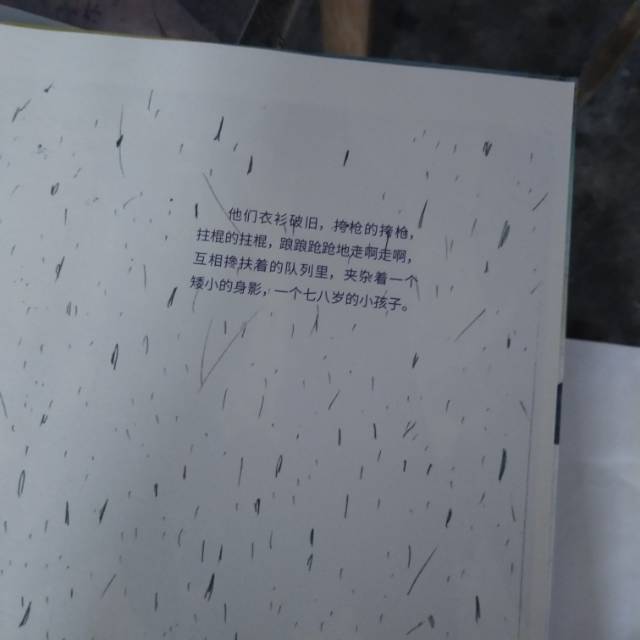 他们衣衫破旧，挎枪的挎枪，
拄棍的拄棍，踉踉跄跄地走啊走啊，
互相搀扶着的队列里，夹杂着一个
矮小的身影，一个七八岁的小孩子。